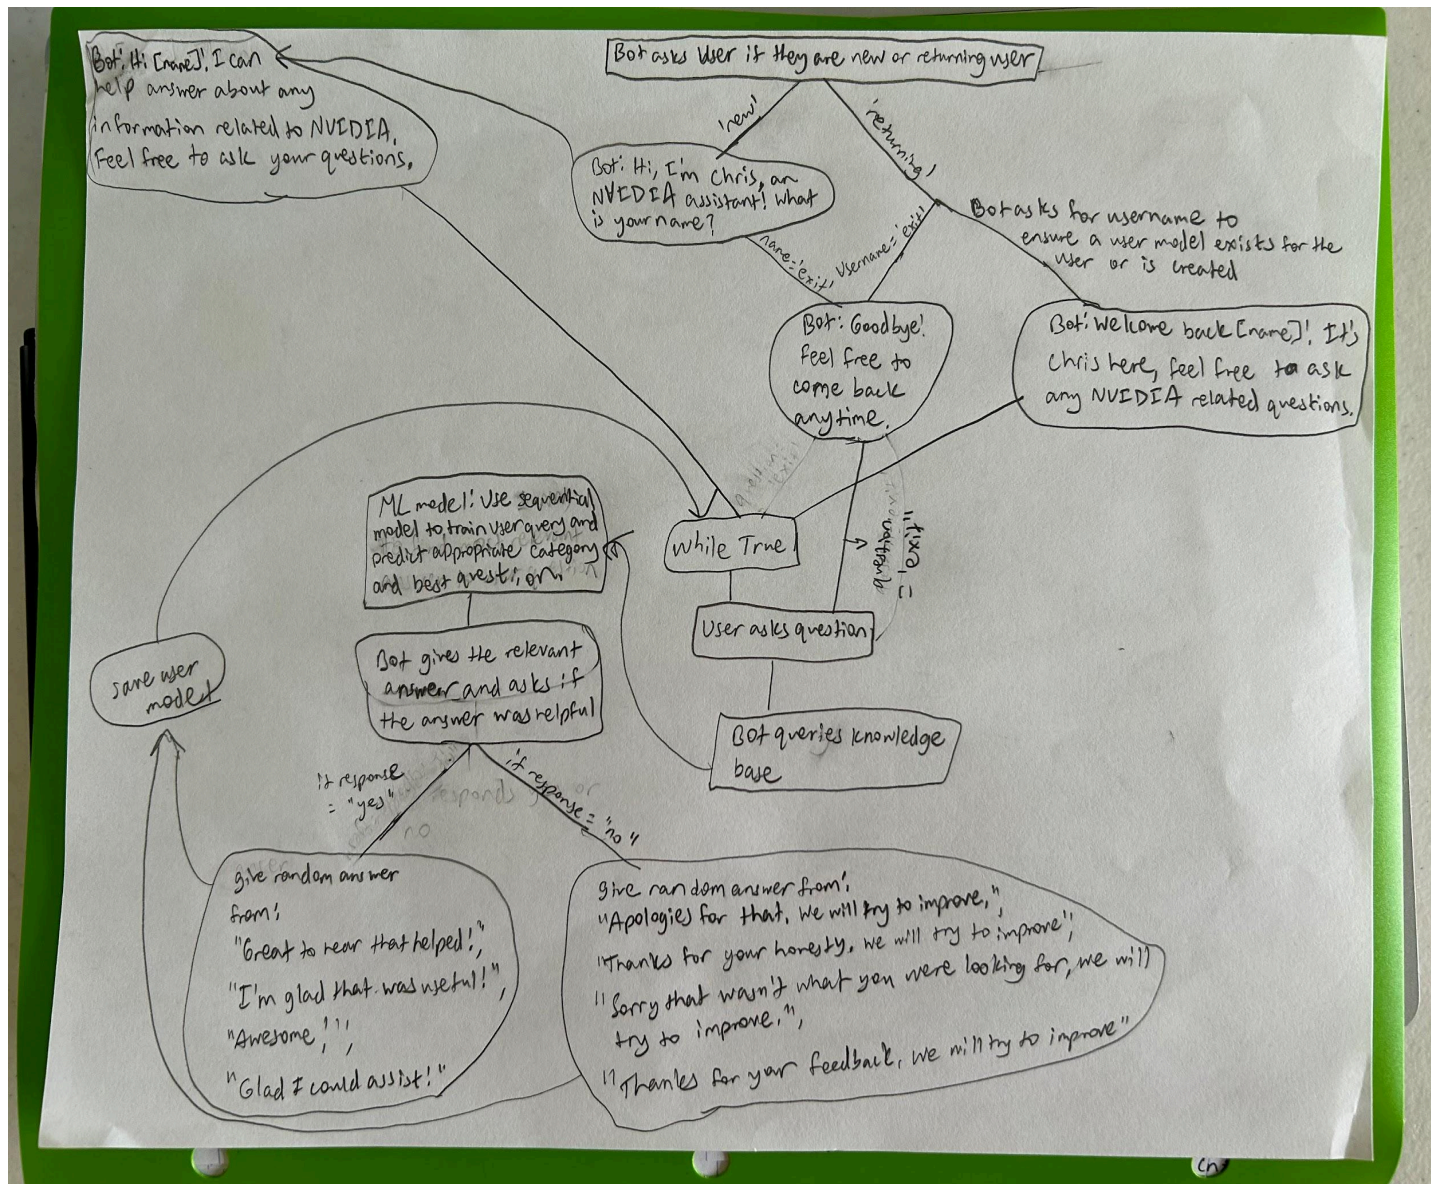 Bot asks User if they are new or returning user
'new'
'returning'
Bot: Hi [name]! I can
help answer about any
information related to NVIDIA.
Feel free to ask your questions.
Bot: Hi, I'm Chris, an
NVIDIA assistant! What
is your name?
name='exit'
Username='exit'
Bot asks for username to
ensure a user model exists for the
user or is created
Bot: Goodbye!
Feel free to
come back
anytime.
Bot: Welcome back [name]! It's
Chris here, feel free to ask
any NVIDIA related questions.
question
= 'exit'
ML model: Use sequential
model to train user query and
predict appropriate category
and best question.
While True
User asks question
Bot queries knowledge
base
Bot gives the relevant
answer and asks if
the answer was helpful
save user
model
if response
= "yes"
if response = "no"
give random answer
from:
"Great to hear that helped!",
"I'm glad that was useful!",
"Awesome!",
"Glad I could assist!"
give random answer from:
"Apologies for that. We will try to improve.",
"Thanks for your honesty. We will try to improve",
"Sorry that wasn't what you were looking for, we will
try to improve.",
"Thanks for your feedback. We will try to improve"